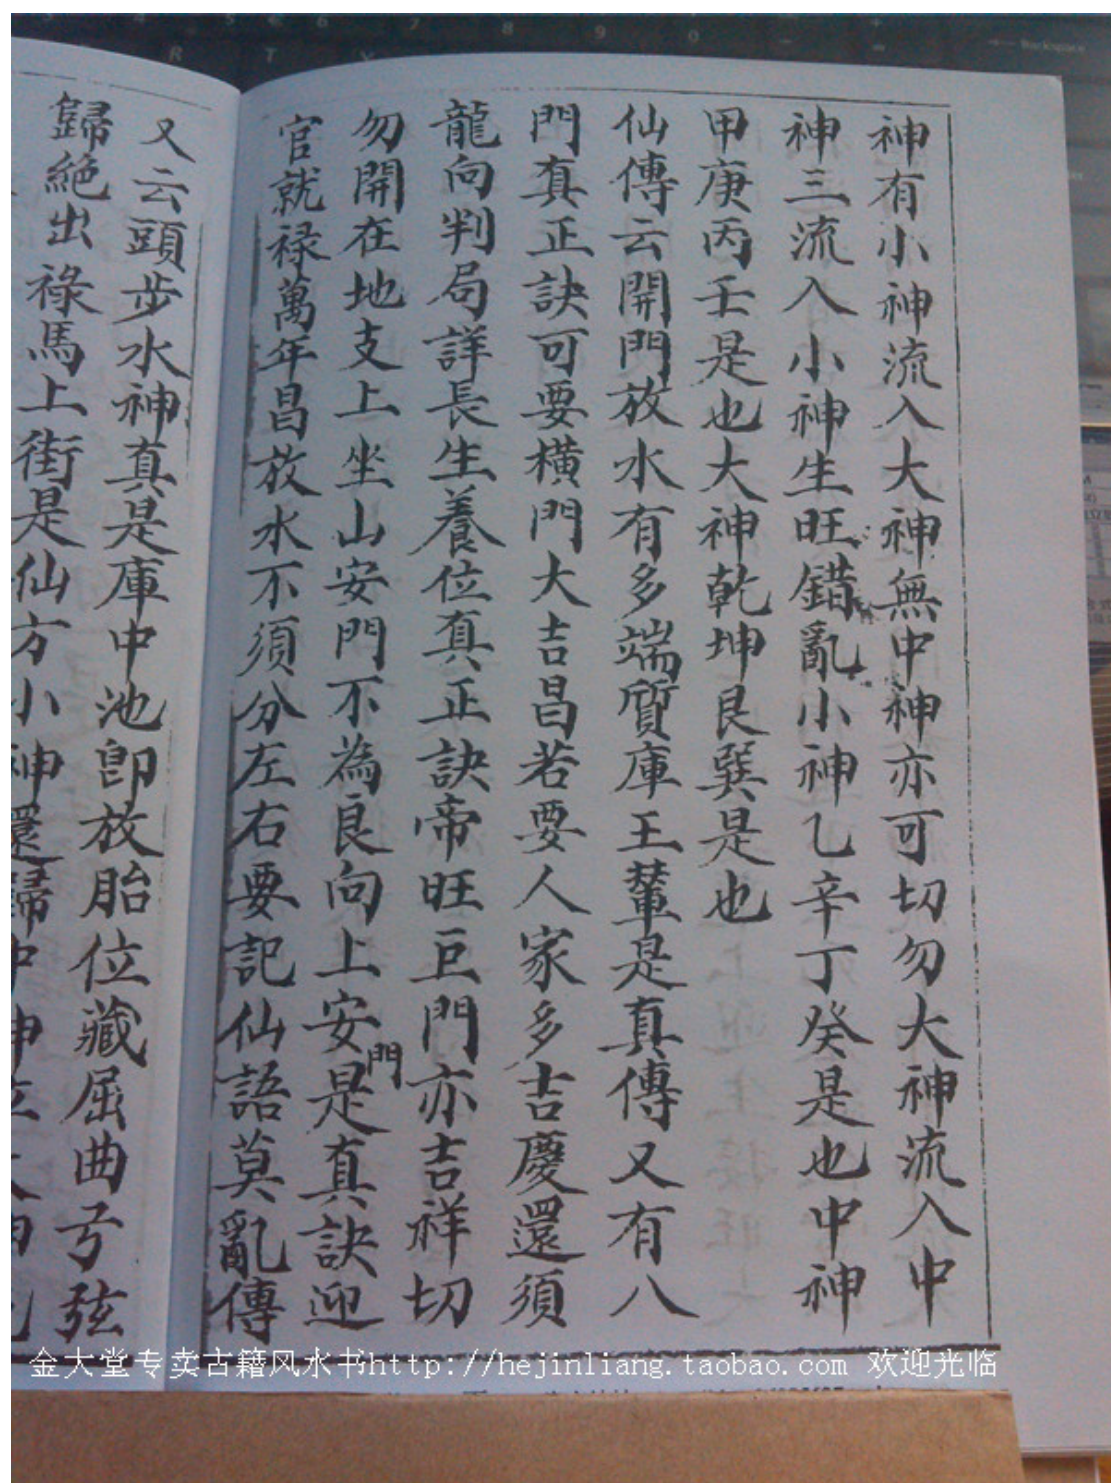 神有小神流入大神無中神亦可切勿大神流入中
神三流入小神生旺錯亂小神乙辛丁癸是也中神
甲庚丙壬是也大神乾坤艮巽是也
仙傳云開門放水有多端質庫王輦是真傳又有八
門真正訣可要橫門大吉昌若要人家多吉慶還須
龍向判局詳長生養位真正訣帝旺巨門亦吉祥切
勿開在地支上坐山安門不為良向上安門是真訣迎
官就祿萬年昌放水不須分左右要記仙語莫亂傳
又云頭步水神真是庫中池卽放胎位藏屈曲兮弦
歸絕出祿馬上街是仙方小神還歸中神
金大堂专卖古籍风水书http://hejinliang.taobao.com 欢迎光临